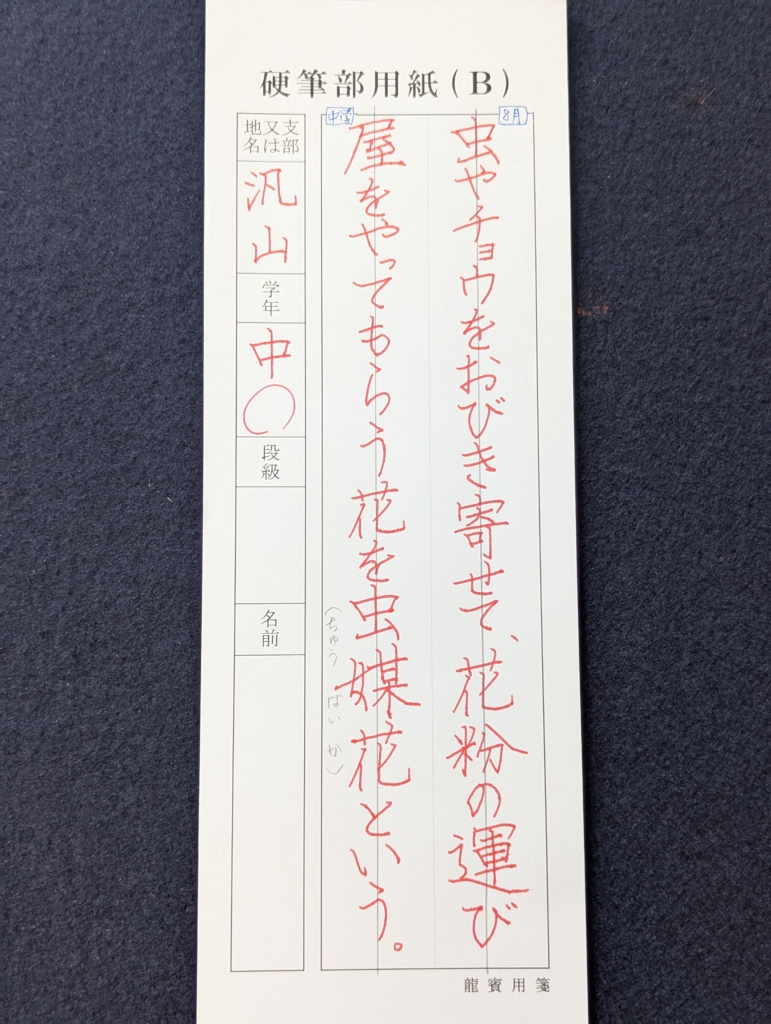 硬筆部用紙(B)
8月
虫やチョウをおびき寄せて、花粉の運び
中学
屋をやってもらう花を虫媒花という。
(ちゅうばいか)
支部又は地名
汎山
学年
中〇
段級
名前
龍賓用箋